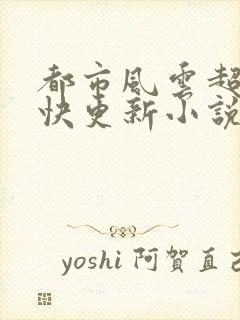 都市風雲超
快更新小說
yoshi 阿賀直己